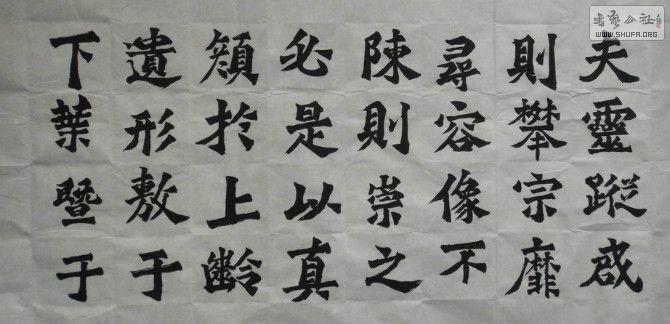 夫靈蹤啟
則攀宗靡
尋容像不
陳則崇之
必是以真
顏於上齡
遺形敷于
下葉暨于
書藝公社
WWW.SHUFA.ORG